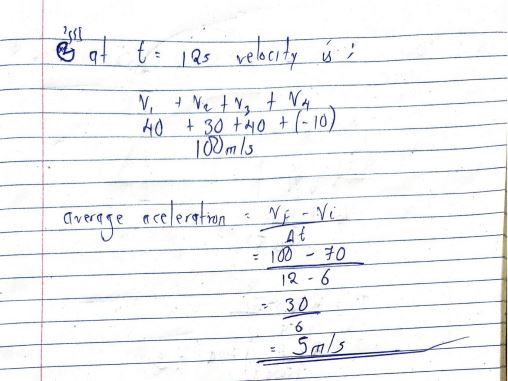 at t = 12s velocity is :
V₁ + V₂ + V₃ + V₄
40 + 30 + 40 + (-10)
100m/s
average aceleration = Vf - Vi
Δt
= 100 - 70
12 - 6
= 30
6
= 5m/s